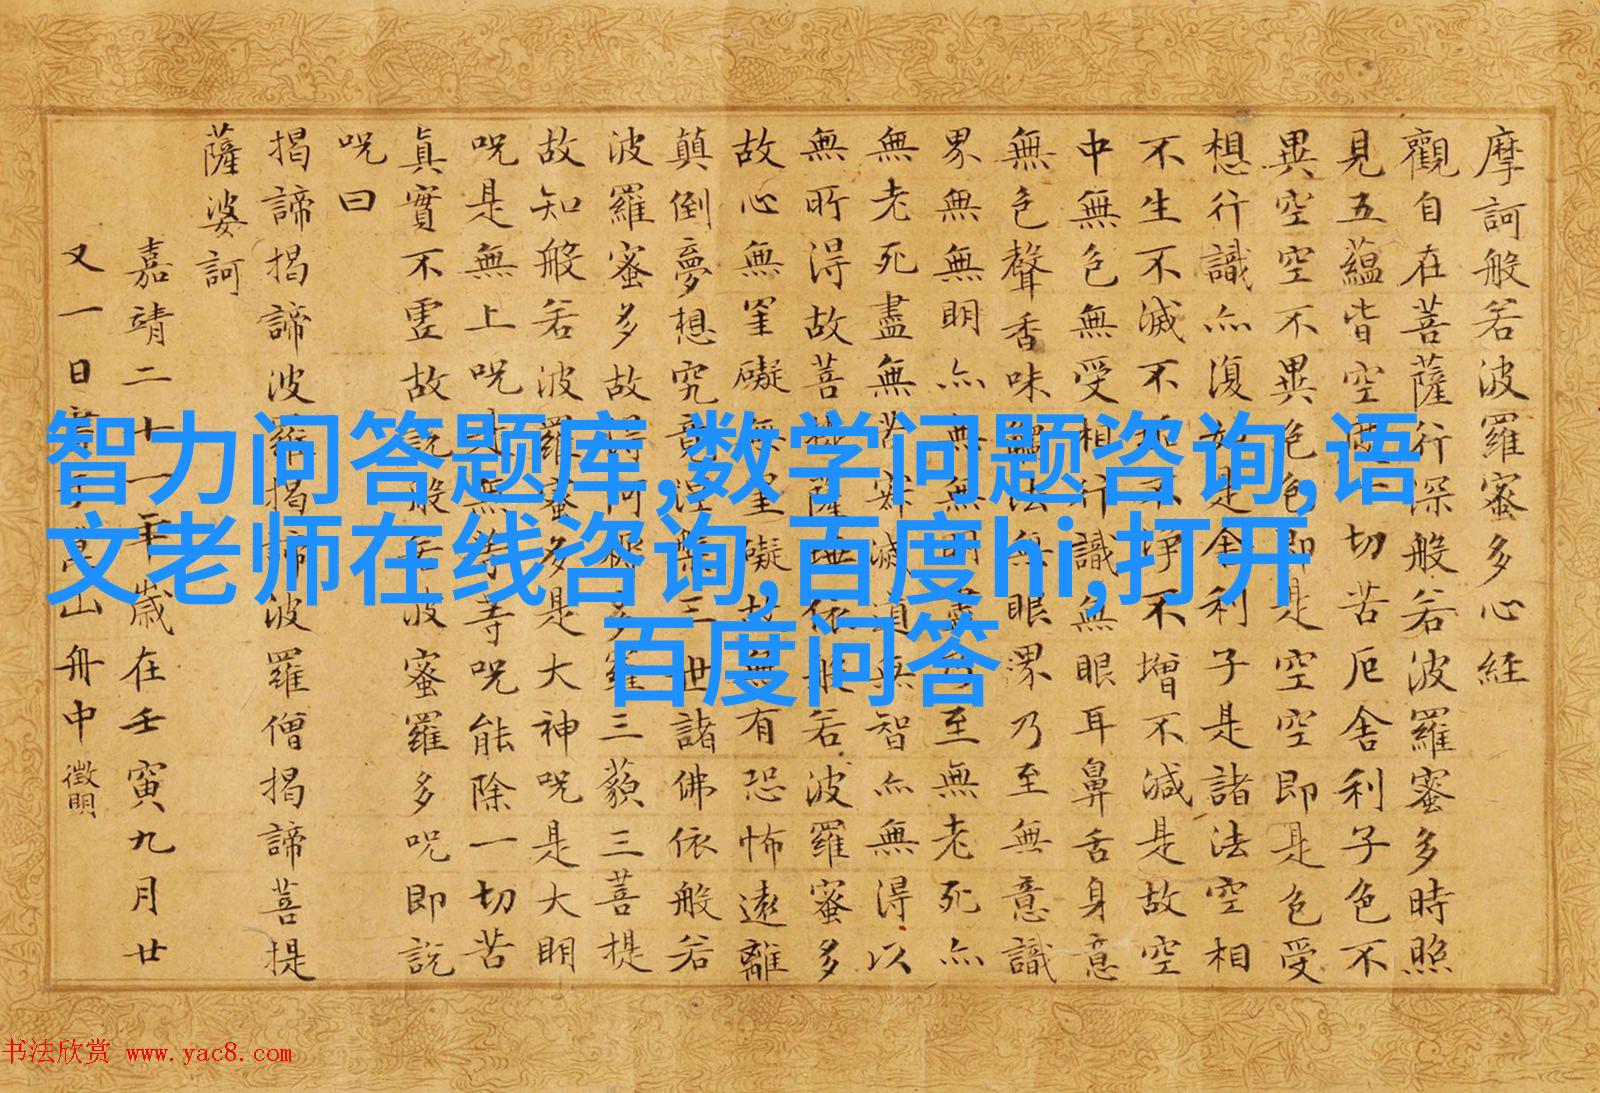 摩訶般若波羅蜜多心経
觀自在菩薩行深般若波羅蜜多時照
見五蘊皆空度一切苦厄舍利子色不
異空空不異色色即是空空即是色受
想行識亦復如是舍利子是諸法空相
不生不滅不垢不淨不增不減是故空
中無色無受相行識無眼耳鼻舌身意
無色聲香味觸法無眼界乃至無意識
界無無明亦無無明盡乃至無老死亦
無老死盡無苦寂滅道無智亦無得以
無所得故菩提薩埵依般若波羅蜜多
故心無罣礙無罣礙故無有恐怖遠離
顛倒夢想究竟涅槃三世諸佛依般若
波羅蜜多故得阿耨多羅三藐三菩提
故知般若波羅蜜多是大神呪是大明
呪是無上呪是無等等呪能除一切苦
真實不虛故說般若波羅蜜多呪即說
呪曰
揭諦揭諦波羅揭諦波羅僧揭諦菩提
薩婆訶
嘉靖二十一年歲在壬寅九月廿
又一日書山舟中 徵明
智力问答题库,数学问题咨询,语
文老师在线咨询,百度hi,打开
百度问答
书法欣赏 www.yac8.com